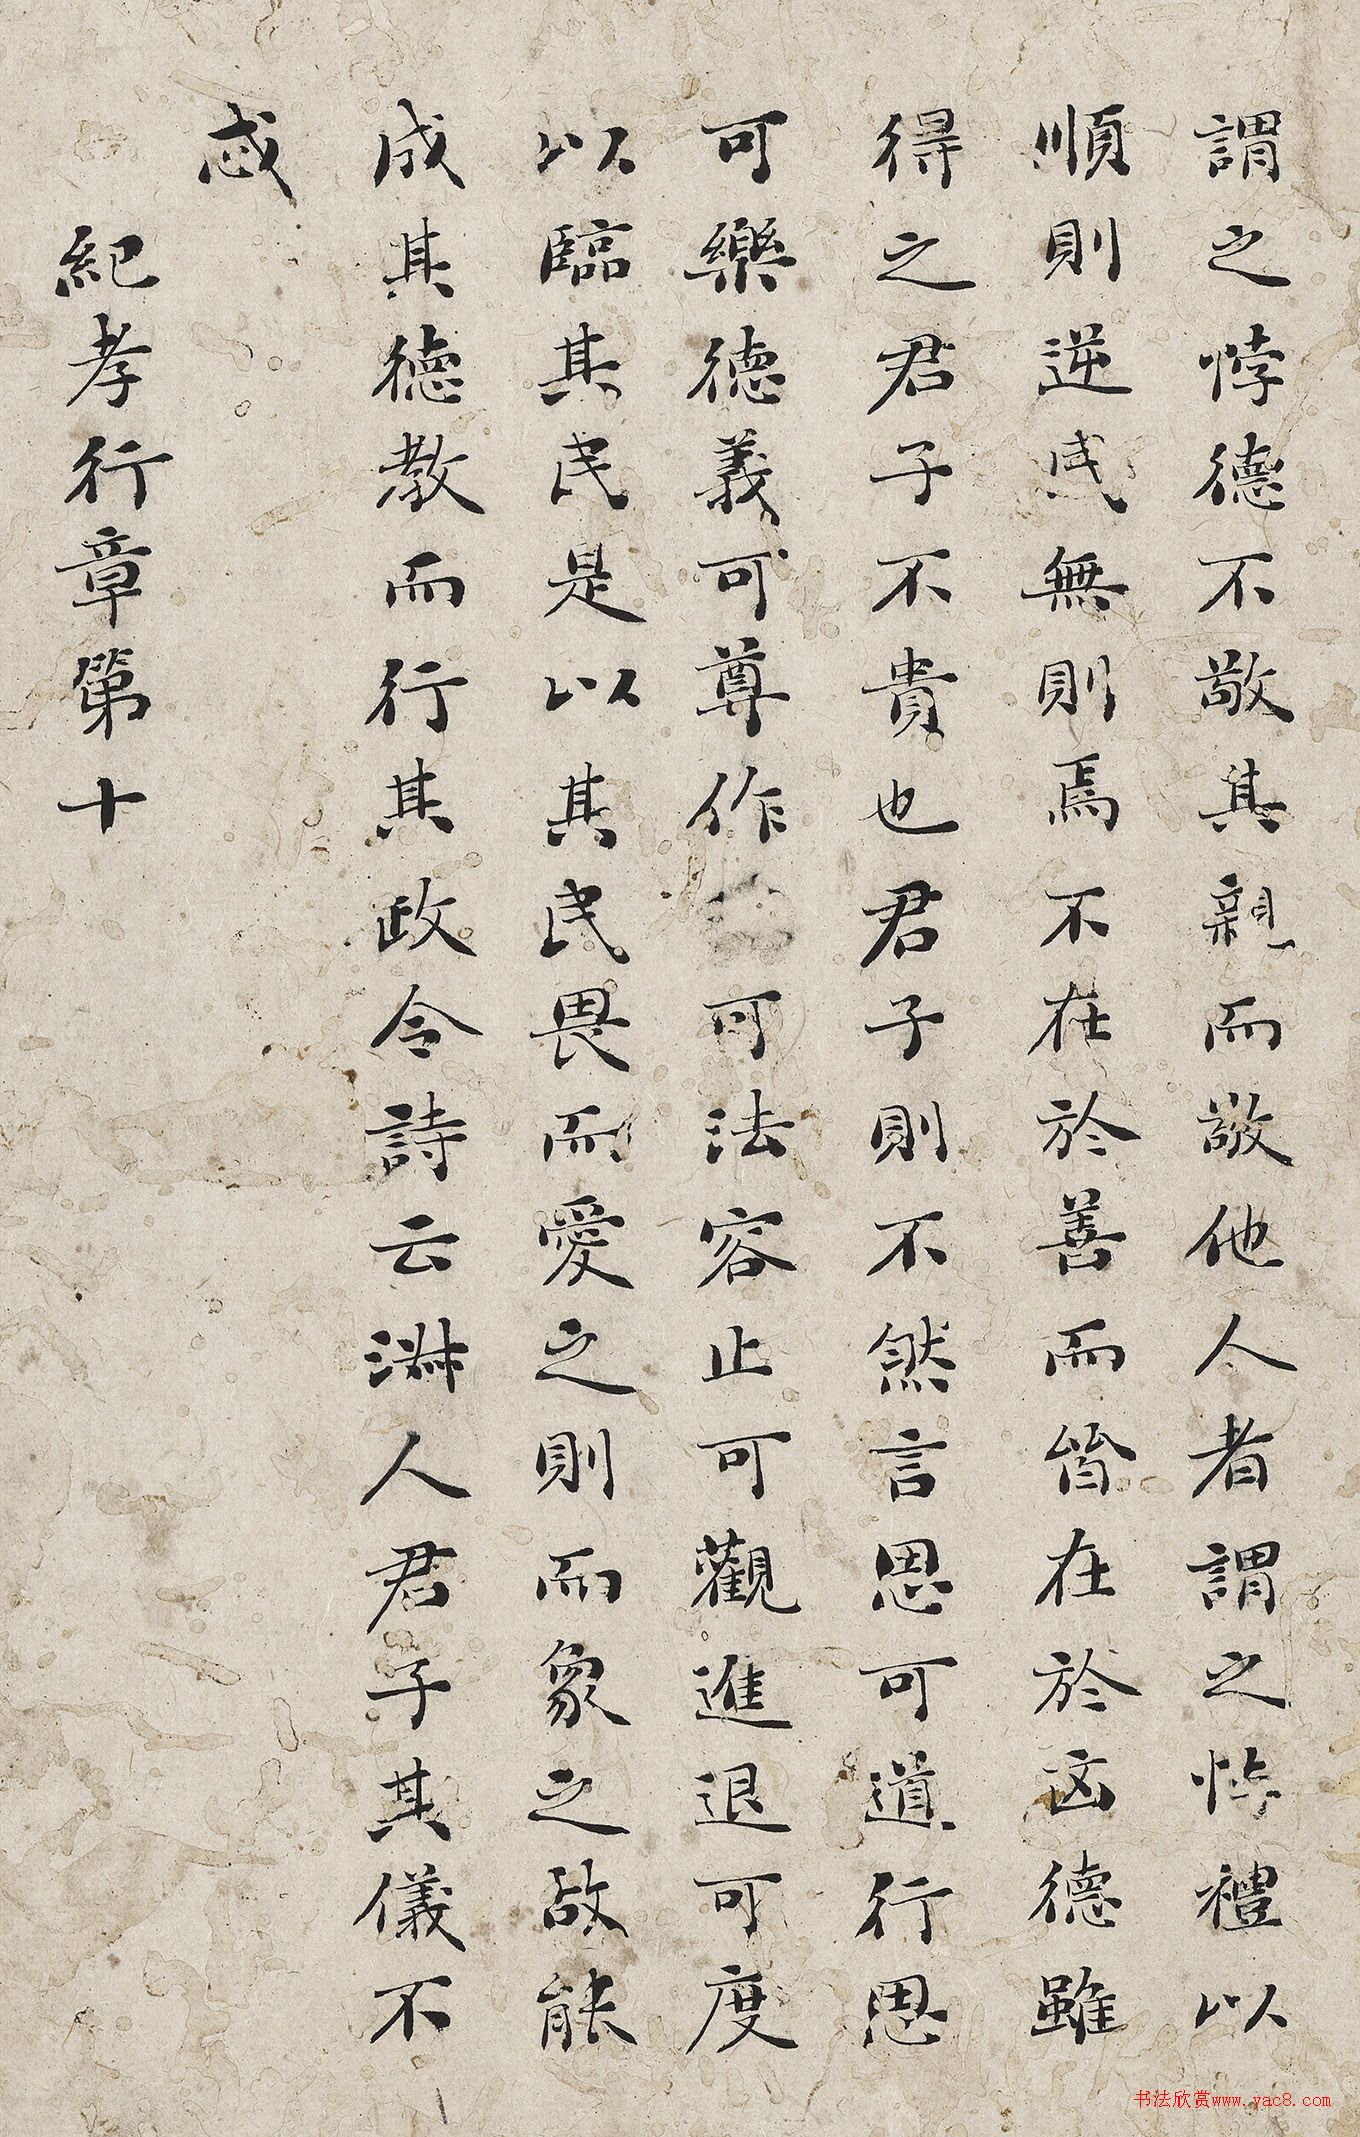 謂之悖德不敬其親而敬他人者謂之悖禮以
順則逆民無則焉不在於善而皆在於凶德雖
得之君子不貴也君子則不然言思可道行思
可樂德義可尊作可法容止可觀進退可度
以臨其民是以其民畏而愛之則而象之故能
成其德教而行其政令詩云淑人君子其儀不
忒
紀孝行章第十
书法欣赏www.yac8.com